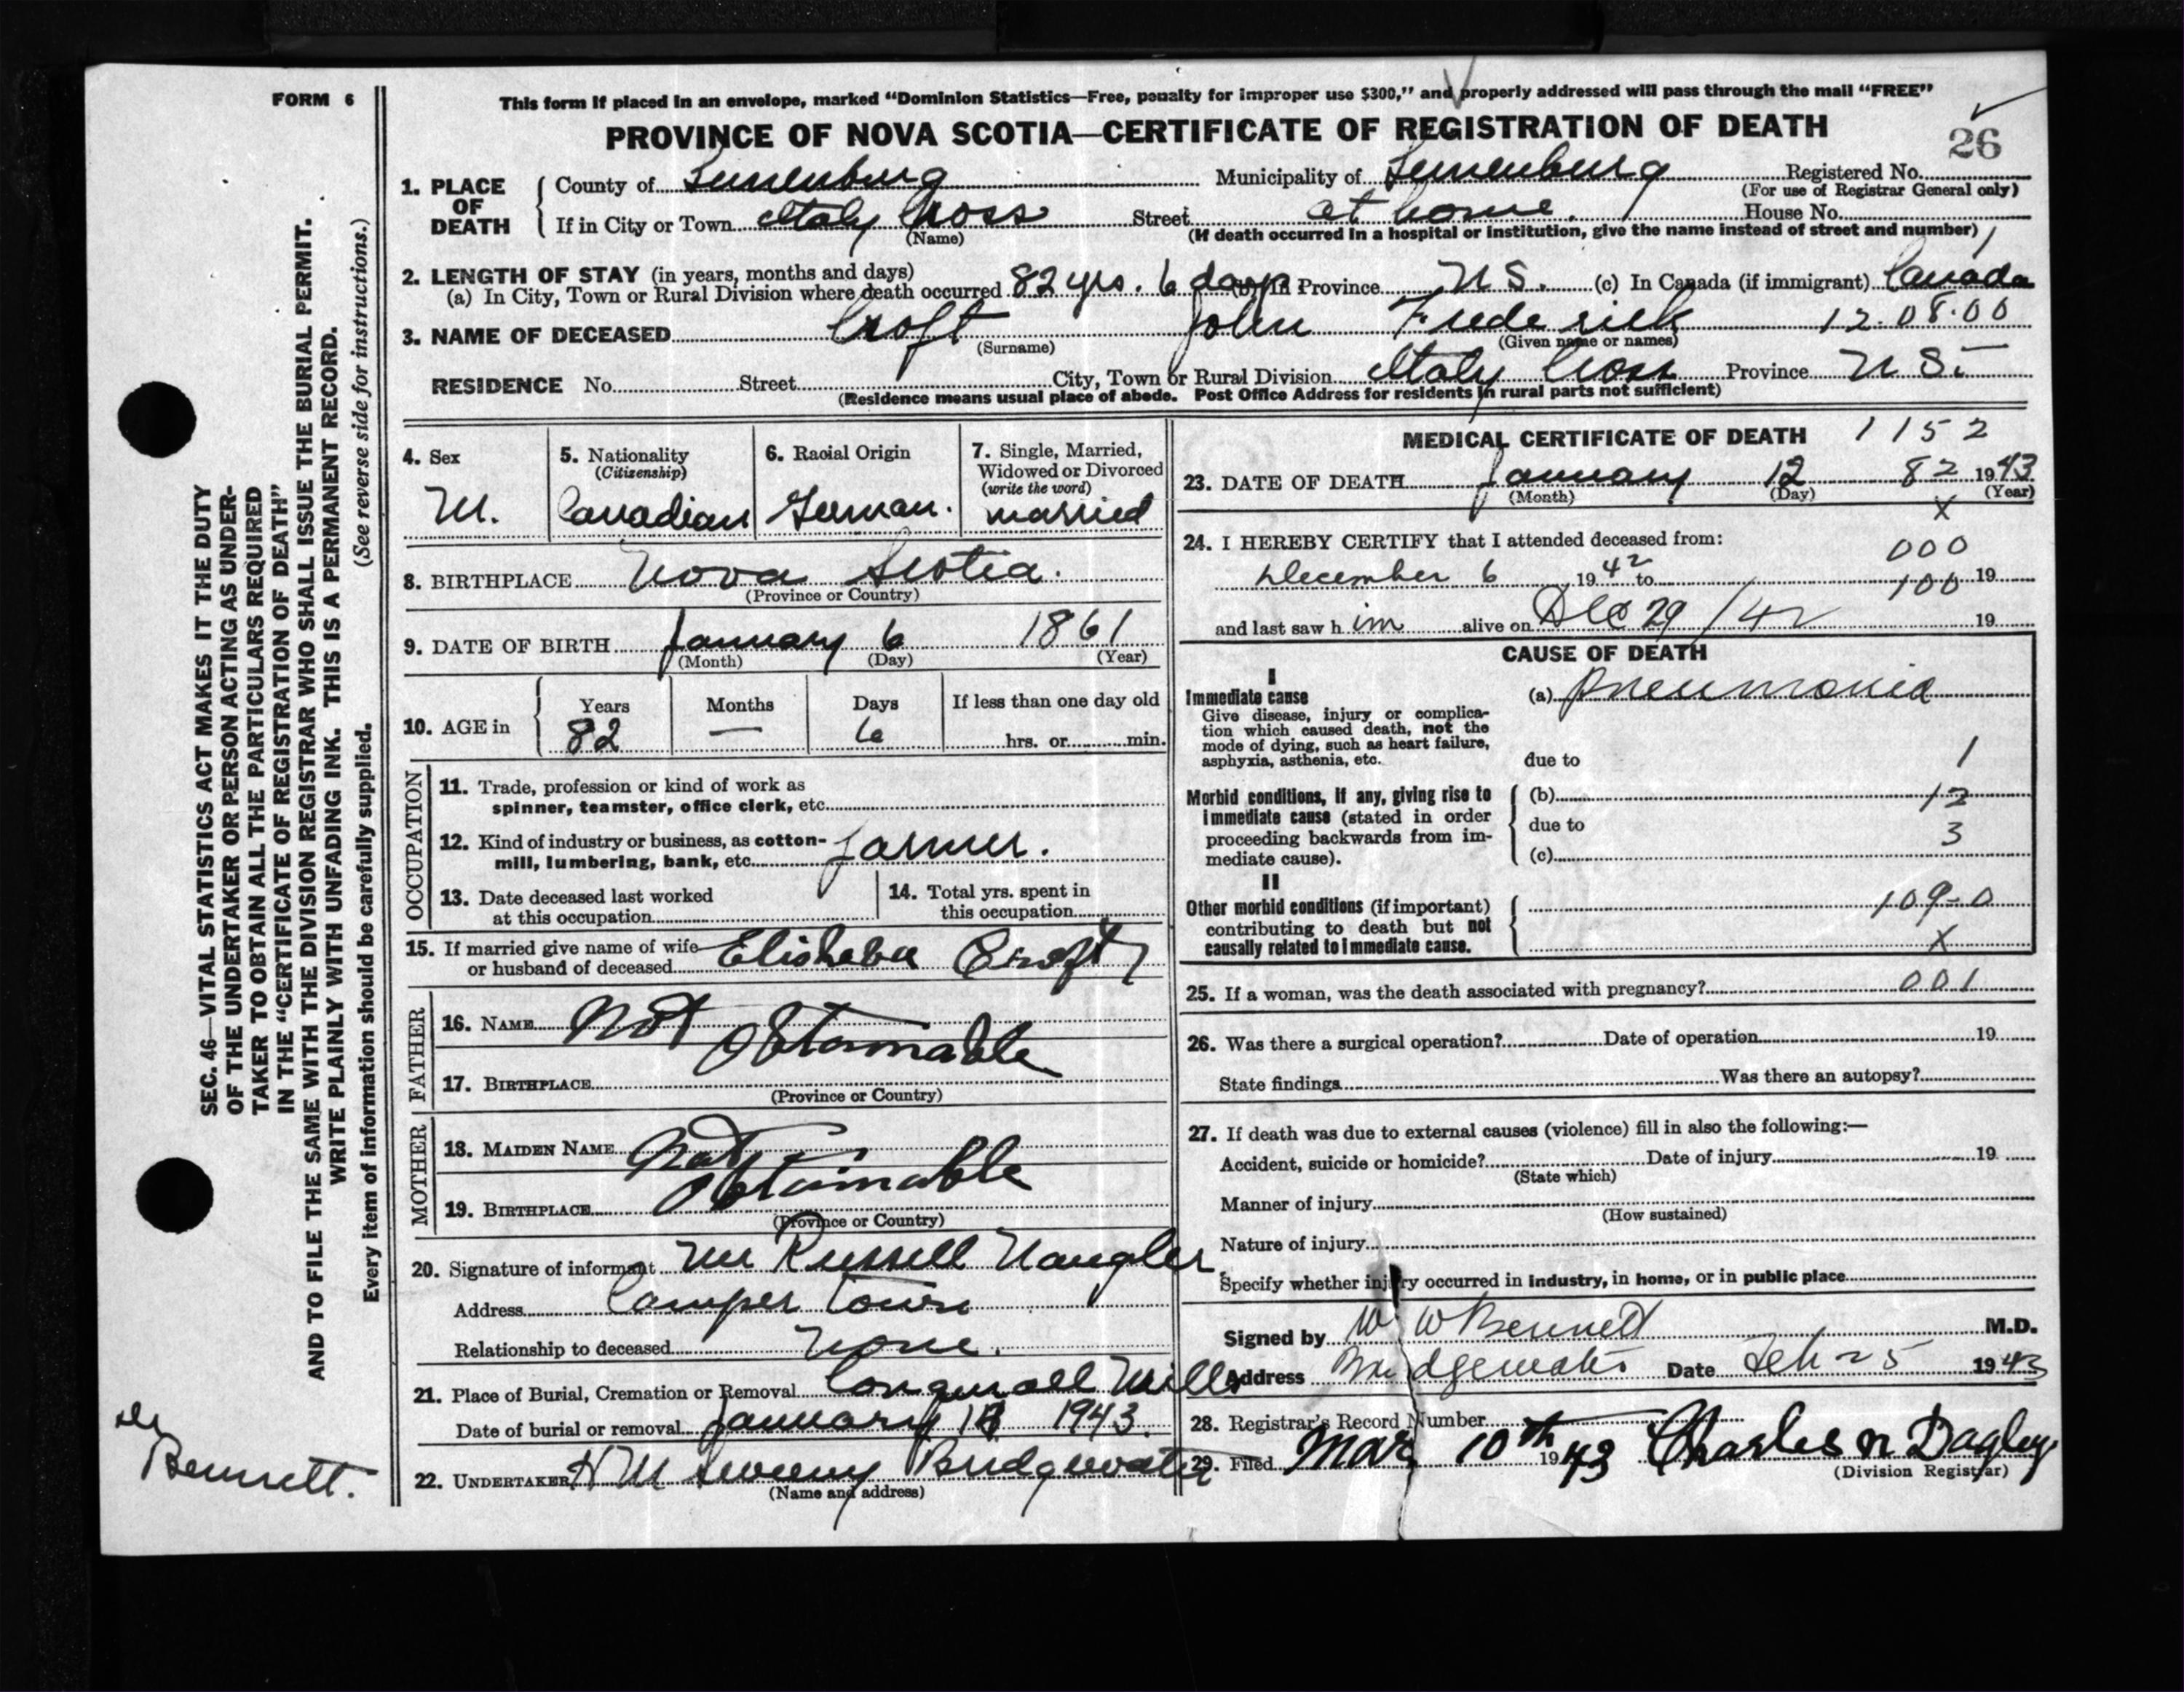 FORM 6
This form if placed in an envelope, marked “Dominion Statistics—Free, penalty for improper use $300,” and properly addressed will pass through the mail “FREE”
PROVINCE OF NOVA SCOTIA—CERTIFICATE OF REGISTRATION OF DEATH
26
1. PLACE OF DEATH
County of Lunenburg Municipality of Lunenburg Registered No.
(For use of Registrar General only)
If in City or Town Italy Cross Street at home. House No.
(Name) (If death occurred in a hospital or institution, give the name instead of street and number)
2. LENGTH OF STAY (in years, months and days)
(a) In City, Town or Rural Division where death occurred 82 yrs. 6 days (b) In Province N.S. (c) In Canada (if immigrant) Canada
3. NAME OF DECEASED Croft John Frederick 12.08.00
(Surname) (Given name or names)
RESIDENCE No. Street City, Town or Rural Division Italy Cross Province N.S.
(Residence means usual place of abode. Post Office Address for residents in rural parts not sufficient)
4. Sex
M.
5. Nationality
(Citizenship)
Canadian
6. Racial Origin
German.
7. Single, Married,
Widowed or Divorced
(write the word)
married
8. BIRTHPLACE Nova Scotia.
(Province or Country)
9. DATE OF BIRTH January 6 1861
(Month) (Day) (Year)
10. AGE in
Years Months Days If less than one day old
82 — 6 hrs. or min.
OCCUPATION
11. Trade, profession or kind of work as
spinner, teamster, office clerk, etc.
12. Kind of industry or business, as cotton-
mill, lumbering, bank, etc. farmer.
13. Date deceased last worked
at this occupation
14. Total yrs. spent in
this occupation
15. If married give name of wife
or husband of deceased Elisheba Croft
FATHER
16. NAME Not
Obtainable
17. BIRTHPLACE
(Province or Country)
MOTHER
18. MAIDEN NAME Not
Obtainable
19. BIRTHPLACE
(Province or Country)
20. Signature of informant Mr Russell Naugler
Address Camper Town
Relationship to deceased none.
21. Place of Burial, Cremation or Removal Conquerall Mills
Date of burial or removal January 1943.
22. UNDERTAKER H M Sweeny Bridgewater
(Name and address)
MEDICAL CERTIFICATE OF DEATH 1152
23. DATE OF DEATH January 12 82 1943
(Month) (Day) (Year)
X
24. I HEREBY CERTIFY that I attended deceased from:
000
December 6 1942 to 100 19
and last saw h im alive on Dec 29/42 19
CAUSE OF DEATH
I
Immediate cause
Give disease, injury or complica-
tion which caused death, not the
mode of dying, such as heart failure,
asphyxia, asthenia, etc.
(a) Pneumonia
due to 1
Morbid conditions, if any, giving rise to
immediate cause (stated in order
proceeding backwards from im-
mediate cause).
(b) 12
due to 3
(c)
II
Other morbid conditions (if important)
contributing to death but not
causally related to immediate cause.
109-0
X
25. If a woman, was the death associated with pregnancy? 001
26. Was there a surgical operation? Date of operation 19
State findings Was there an autopsy?
27. If death was due to external causes (violence) fill in also the following:—
Accident, suicide or homicide? Date of injury 19
(State which)
Manner of injury
(How sustained)
Nature of injury
Specify whether injury occurred in industry, in home, or in public place
Signed by W W Bennett M.D.
Address Bridgewater Date Feb 25 1943
28. Registrar's Record Number
29. Filed Mar 10th 1943 Charles N Dagley
(Division Registrar)
SEC. 46—VITAL STATISTICS ACT MAKES IT THE DUTY
OF THE UNDERTAKER OR PERSON ACTING AS UNDER-
TAKER TO OBTAIN ALL THE PARTICULARS REQUIRED
IN THE “CERTIFICATE OF REGISTRATION OF DEATH”
AND TO FILE THE SAME WITH THE DIVISION REGISTRAR WHO SHALL ISSUE THE BURIAL PERMIT.
WRITE PLAINLY WITH UNFADING INK. THIS IS A PERMANENT RECORD.
(See reverse side for instructions.)
Every item of information should be carefully supplied.
Dr
Bennett.